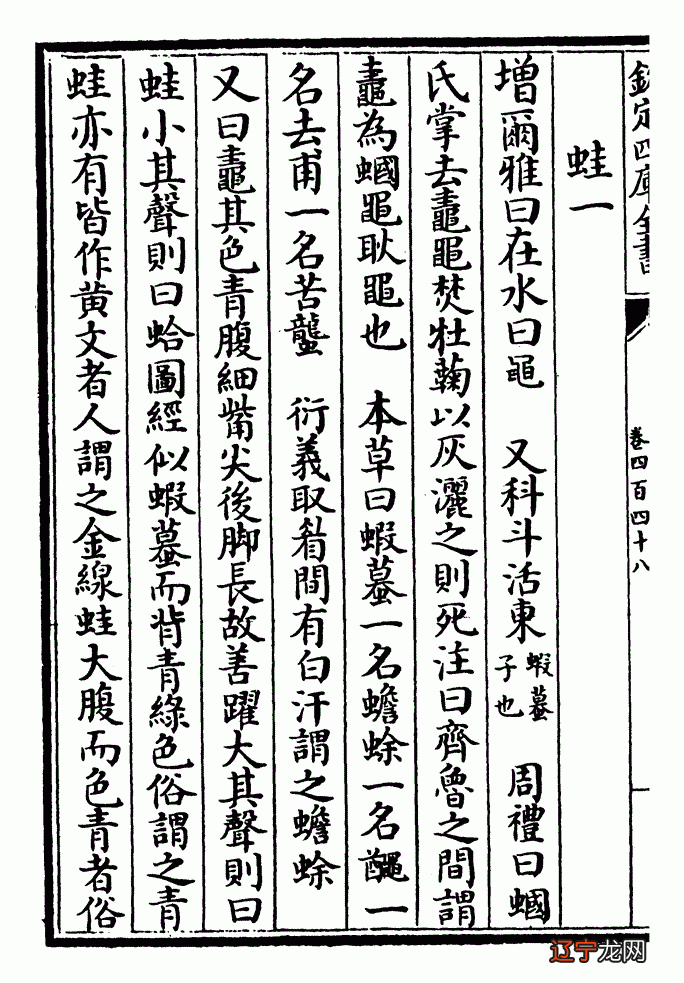 欽定四庫全書
卷四百四十八
蛙一
增爾雅曰在水曰黽 又科斗活東 蝦蟇子也 周禮曰蟈
氏掌去鼃黽焚牡蘜以灰灑之則死注曰齊魯之間謂
鼃為蟈黽耿黽也 本草曰蝦蟇一名蟾蜍一名 一
名去甫一名苦蠪 衍義取眉間有白汗謂之蟾蜍
又曰鼃其色青腹細觜尖後脚長故善躍大其聲則曰
蛙小其聲則曰蛤圖經似蝦蟇而背青綠色俗謂之青
蛙亦有皆作黄文者人謂之金線蛙大腹而色青者俗
辽宁龙网